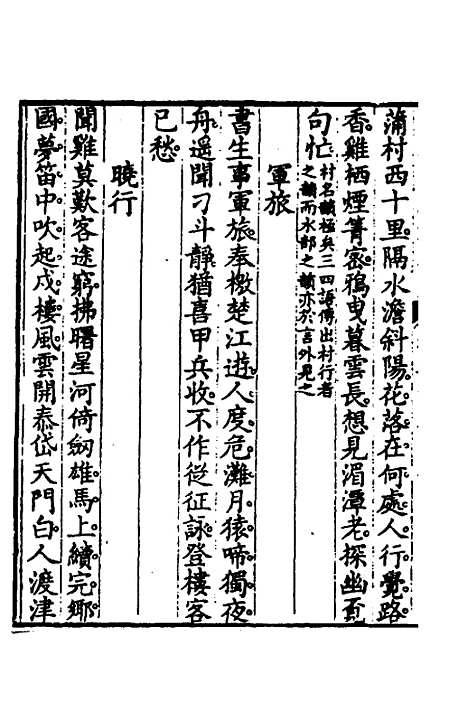 蒲村西十里隔水澹斜陽花落在何處人行覺路
香雞栖煙箐密鴉曳暮雲長想見湄潭老探幽
句忙村名韻極矣三四語傳出村行者之韻而水部之韻亦於言外見之
軍旅
書生事軍旅奉檄楚江遊人度危灘月猿啼獨夜
舟遥聞刁斗靜猶喜甲兵收不作從征詠登樓客
已愁
曉行
聞雞莫歎客途窮拂曙星河倚劒雄馬上續完鄉
國夢笛中吹起戍樓風雲開泰岱天門白人渡津